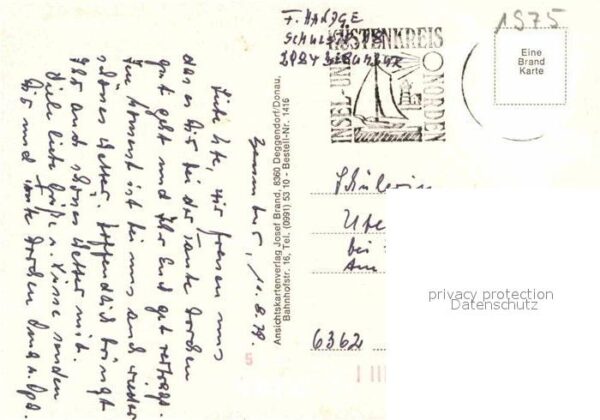 1975
F. HANJGE
INSEL- UND KÜSTENKREIS NORDEN
Eine
Brand
Karte
Ansichtskartenverlag Josef Brand, 8360 Deggendorf/Donau,
Bahnhofstr. 16, Tel. (0991) 53 10 - Bestell-Nr. 1416
10.8.79.
Liebe Ute, wir freuen uns
dass es Dir bei der Tante Dorchen
gut geht und Ihr Euch gut vertragt.
Im Moment ist bei uns auch wieder
schönes Wetter, hoffentlich bringt
Ihr auch schönes Wetter mit.
Viele liebe Grüße u. Küsse senden
Dir und Tante Dorchen Oma u. Opa.
Schülerin
Ute
bei
Am
6362
privacy protection
Datenschutz
5